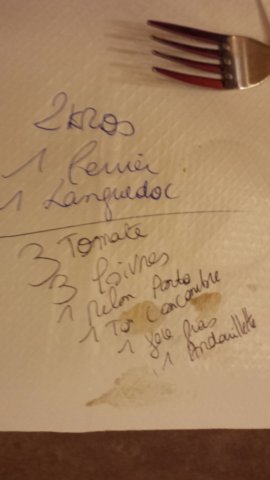 2 Kros
1 Perrier
1 Languedoc
3 Tomate
3 Poivres
1 Melon Porto
1 Tom Concombre
1 foie gras
1 Andouillette